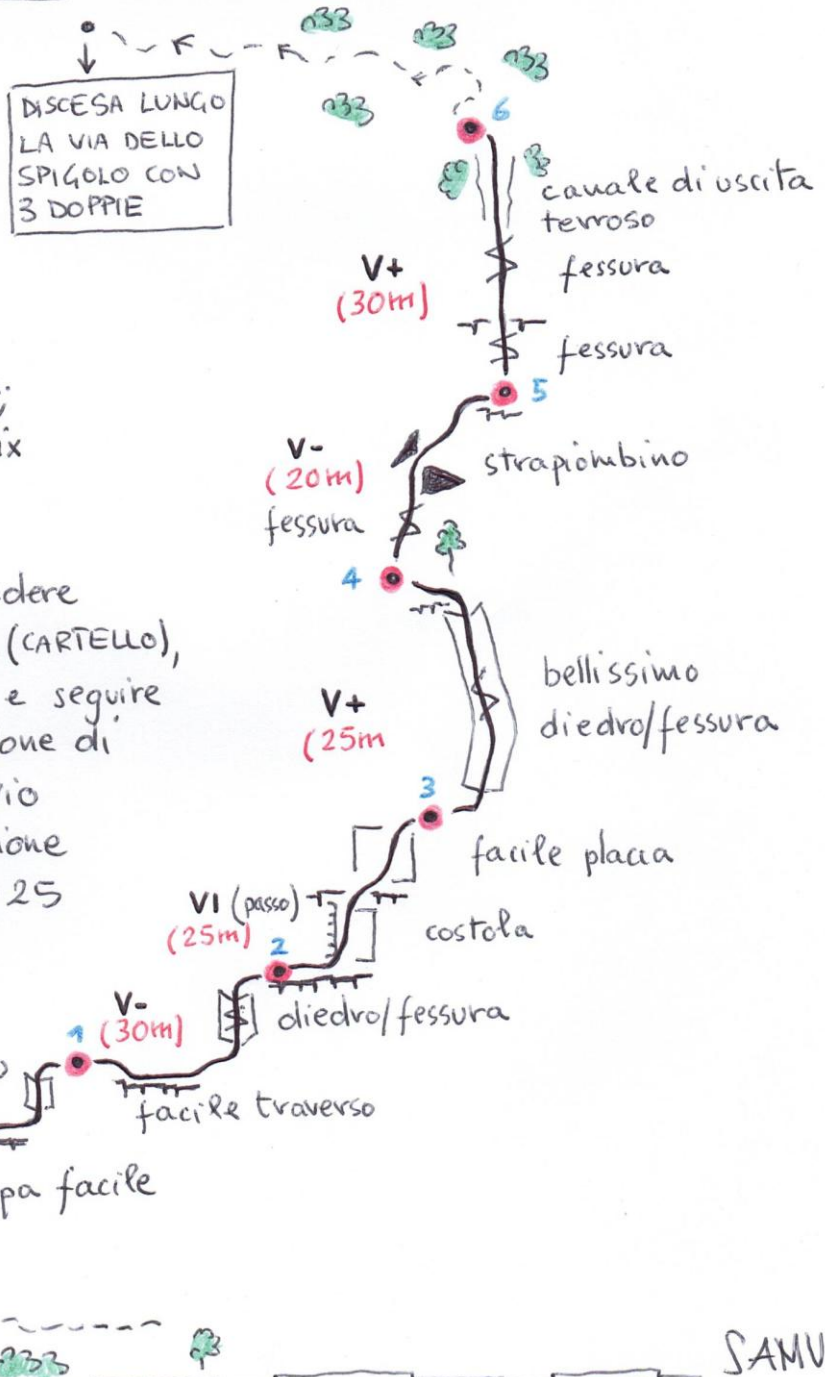 DISCESA LUNGO
LA VIA DELLO
SPIGOLO CON
3 DOPPIE
6
canale di uscita
terroso
V+
(30m)
fessura
fessura
5
V-
(20m)
strapiombino
fessura
4
(CARTELLO),
e seguire
bellissimo
diedro/fessura
V+
(25m
3
facile placca
25
VI (passo)
(25m)
costola
2
diedro/fessura
V-
(30m)
1
facile traverso
facile